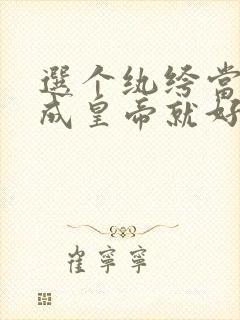 選个纨绔当
成皇帝就好
崔寧寧